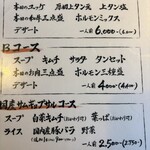 本日のユッケ 厚切上タン元 上タン塩
本日の和牛三点盛 ホルモンミックス
デザート 一人前 6,000
Bコース
スープ キムチ サラダ タンセット
本日のお肉三点盛 ホルモン三種盛
デザート 一人前 4,000 (4,400)
国産サムギョプサルコース
スープ 白菜キムチ 葉っぱ
ライス 国内産豚バラ 野菜
一人前 2,500 (2,750)